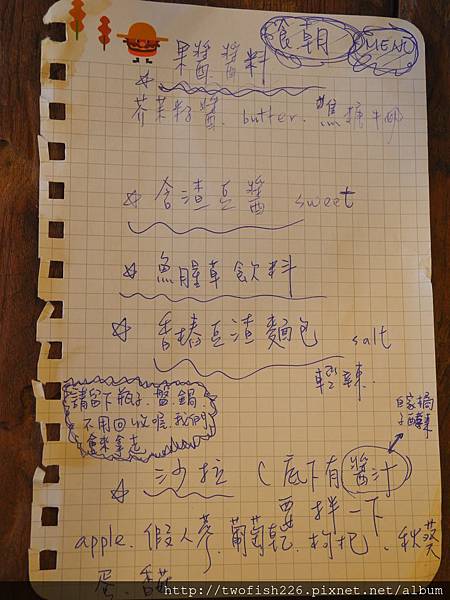 食朝 MENU
☆ 果醬醬料
芥茉籽醬. butter. 焦糖牛奶
☆ 含渣豆醬 sweet
☆ 魚腥草飲料
☆ 香椿豆渣麵包 salt
輕辣.
請留下瓶子. 暫鍋.
不用回收喔. 我們
會來拿走
自家橘子醋辣
☆ 沙拉 ( 底下有醬汁
要拌一下
apple. 假人蔘. 葡萄乾. 枸杞. 秋葵
蛋. 香菇
http://twofish226.pixnet.net/album